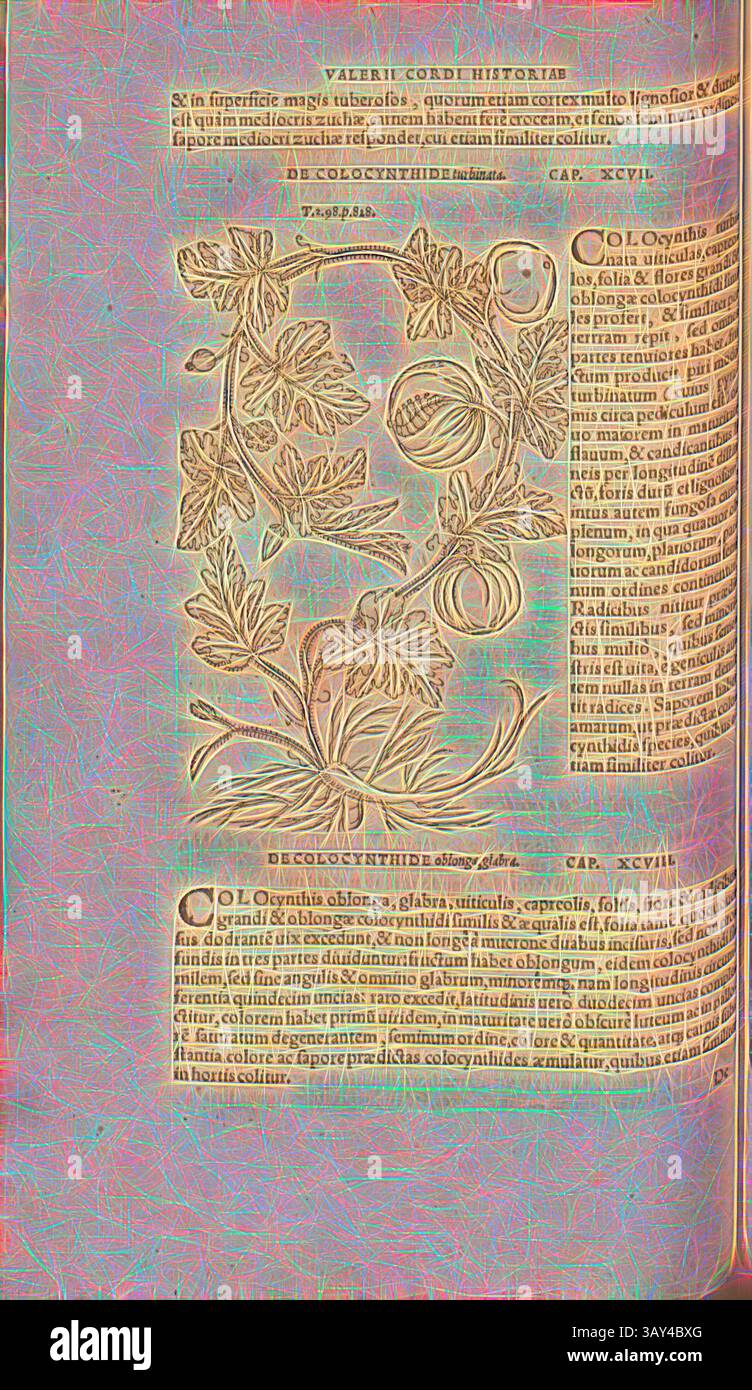 VALERII CORDI HISTORIAE
& in superficie magis tuberosos, quorum etiam cortex multo lignosior & durior
est quàm mediocris zuchæ, carnem habent ferè croceam, et seños seminum ordines
sapore mediocri zuchæ respondet, cui etiam similiter colitur.
DE COLOCYNTHIDE turbinata. CAP. XCVII.
T.2.98.p.828.
COLOcynthis
nata uiticulas, capreo
los, folia & flores grandi &
oblongæ colocynthidi
les profert, & similiter
terram repit, sed omnes
partes tenuiores habet,
ctum producit, piri modo
turbinatum
mis circa pediculum est,
uo maiorem in
flauum, & candicantibus
neis per longitudinẽ
ctũ, foris durũ et lignosum
tus autem fungosa carne
plenum, in qua quatuor
longorum, planorum,
uorum ac candidorum
num ordines continentur
Radicibus nititur
ctis similibus, sed minori
bus multo, quibus
stris est uita, e geniculis
tem nullas in terram
tit radices. Saporem
amarum ut prædictæ
cynthidis species, quibus
tiam similiter colitur.
DE COLOCYNTHIDE oblonga, glabra. CAP. XCVIII.
COLOcynthis oblonga, glabra, uiticulis, capreolis, folijs, flore &
grandi & oblongæ colocynthidi similis & æqualis est, folijs
ius dodrantẽ uix excedunt, & non longè à mucrone duabus incisuris, sed non
fundis in tres partes diuiduntur: fructum habet oblongum, eidem colocynthidi
milem, sed sine angulis & omnino glabrum, minoremq́, nam longitudinis
ferentia quindecim uncias: raro excedit, latitudinis uero duodecim uncias
ctitur, colorem habet primũ uiridem, in maturitate uero obscurè luteum ac in
rẽ saturatum degenerantem, seminum ordine, colore & quantitate, atq́ carnis
stantia colore ac sapore prædictas colocynthides æmulatur, quibus etiam similiter
in hortis colitur.
De
a
alamy
Image ID: 3AY4BXG
www.alamy.com